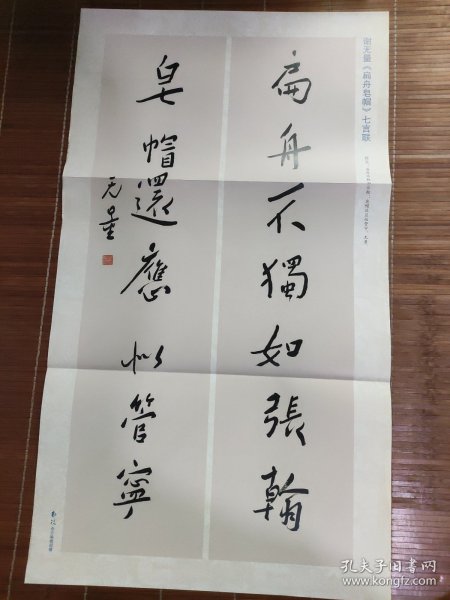 谢无量《扁舟皂帽》七言联
扁舟不獨如張翰
皂帽還應似管寧
无量
孔夫子旧书网
www.kongfz.com